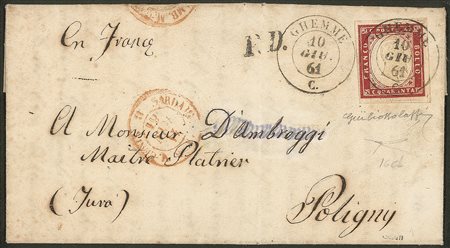 En Franc
P.D.
GHEMME
10
GIU.
61
C.
GHEMME
10
GIU.
61
FRANCO
BOLLO
C. QUARANTA
SARDAIG.
A Monsieur D'Ambroggi
Maitre Platrier
(Jura)
Poligny